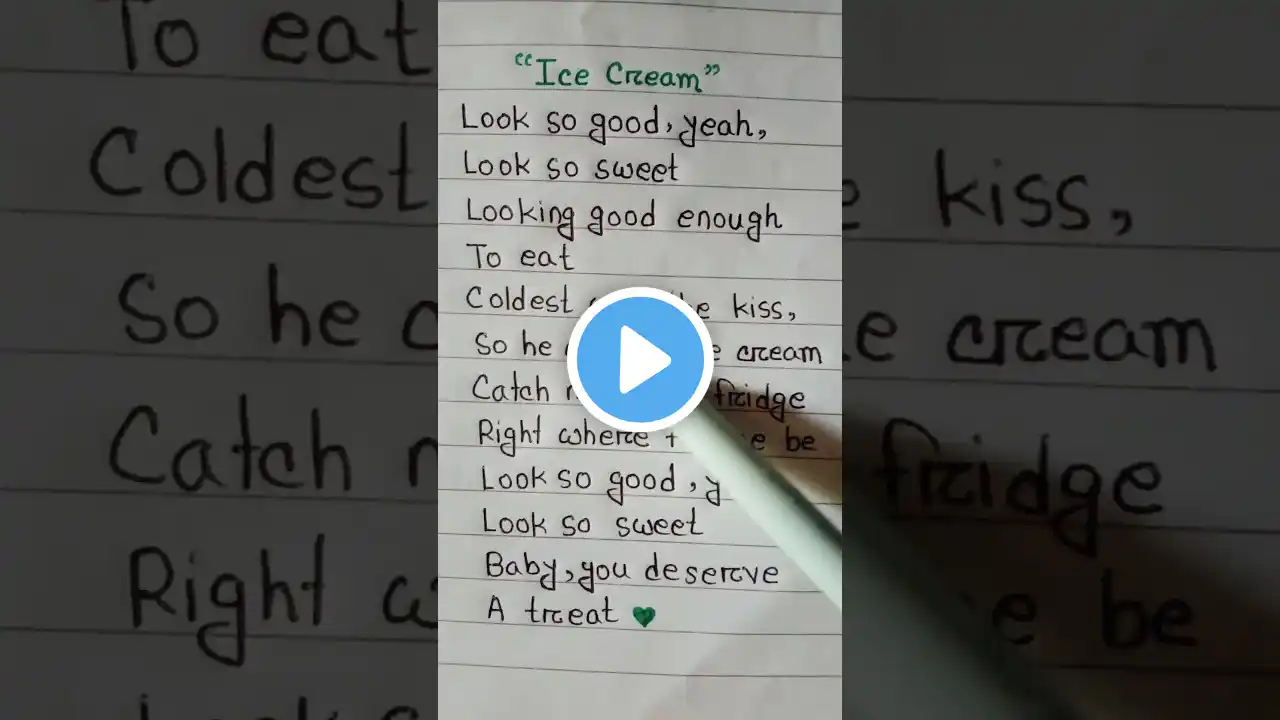 "Ice Cream"
Look so good, yeah,
Look so sweet
Looking good enough
To eat
Coldest kiss,
So he cream
Catch fridge
Right where be
Look so good, y
Look so sweet
Baby, you deserve
A treat